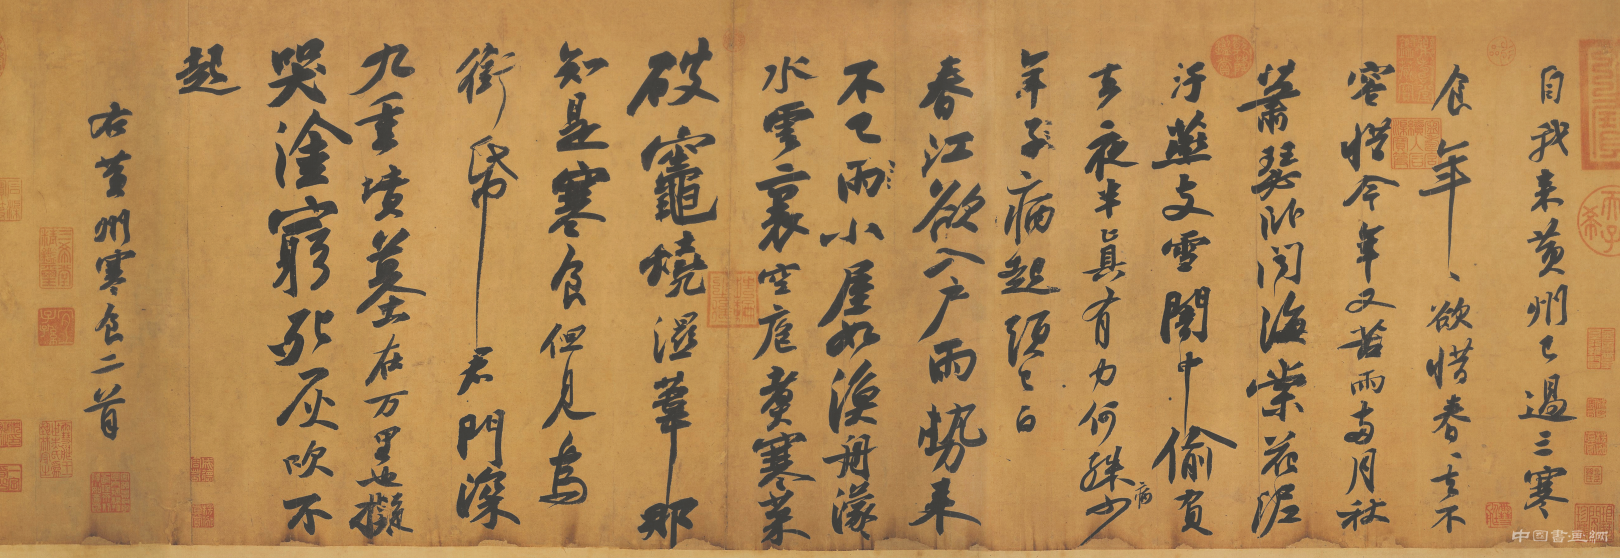 自我來黃州已過三寒
食年〻欲惜春〻去不
容惜今年又苦雨兩月秋
蕭瑟臥聞海棠花泥
汙燕支雪闇中偷負
去夜半真有力何殊少
病
年子病起頭已白
春江欲入戶雨勢來
不已雨小屋如漁舟濛
水雲裏空庖煑寒菜
破竈燒濕葦那
知是寒食但見烏
銜帋君門深
九重墳墓在万里也擬
哭塗窮死灰吹不
起
右黃州寒食二首
中国書画網